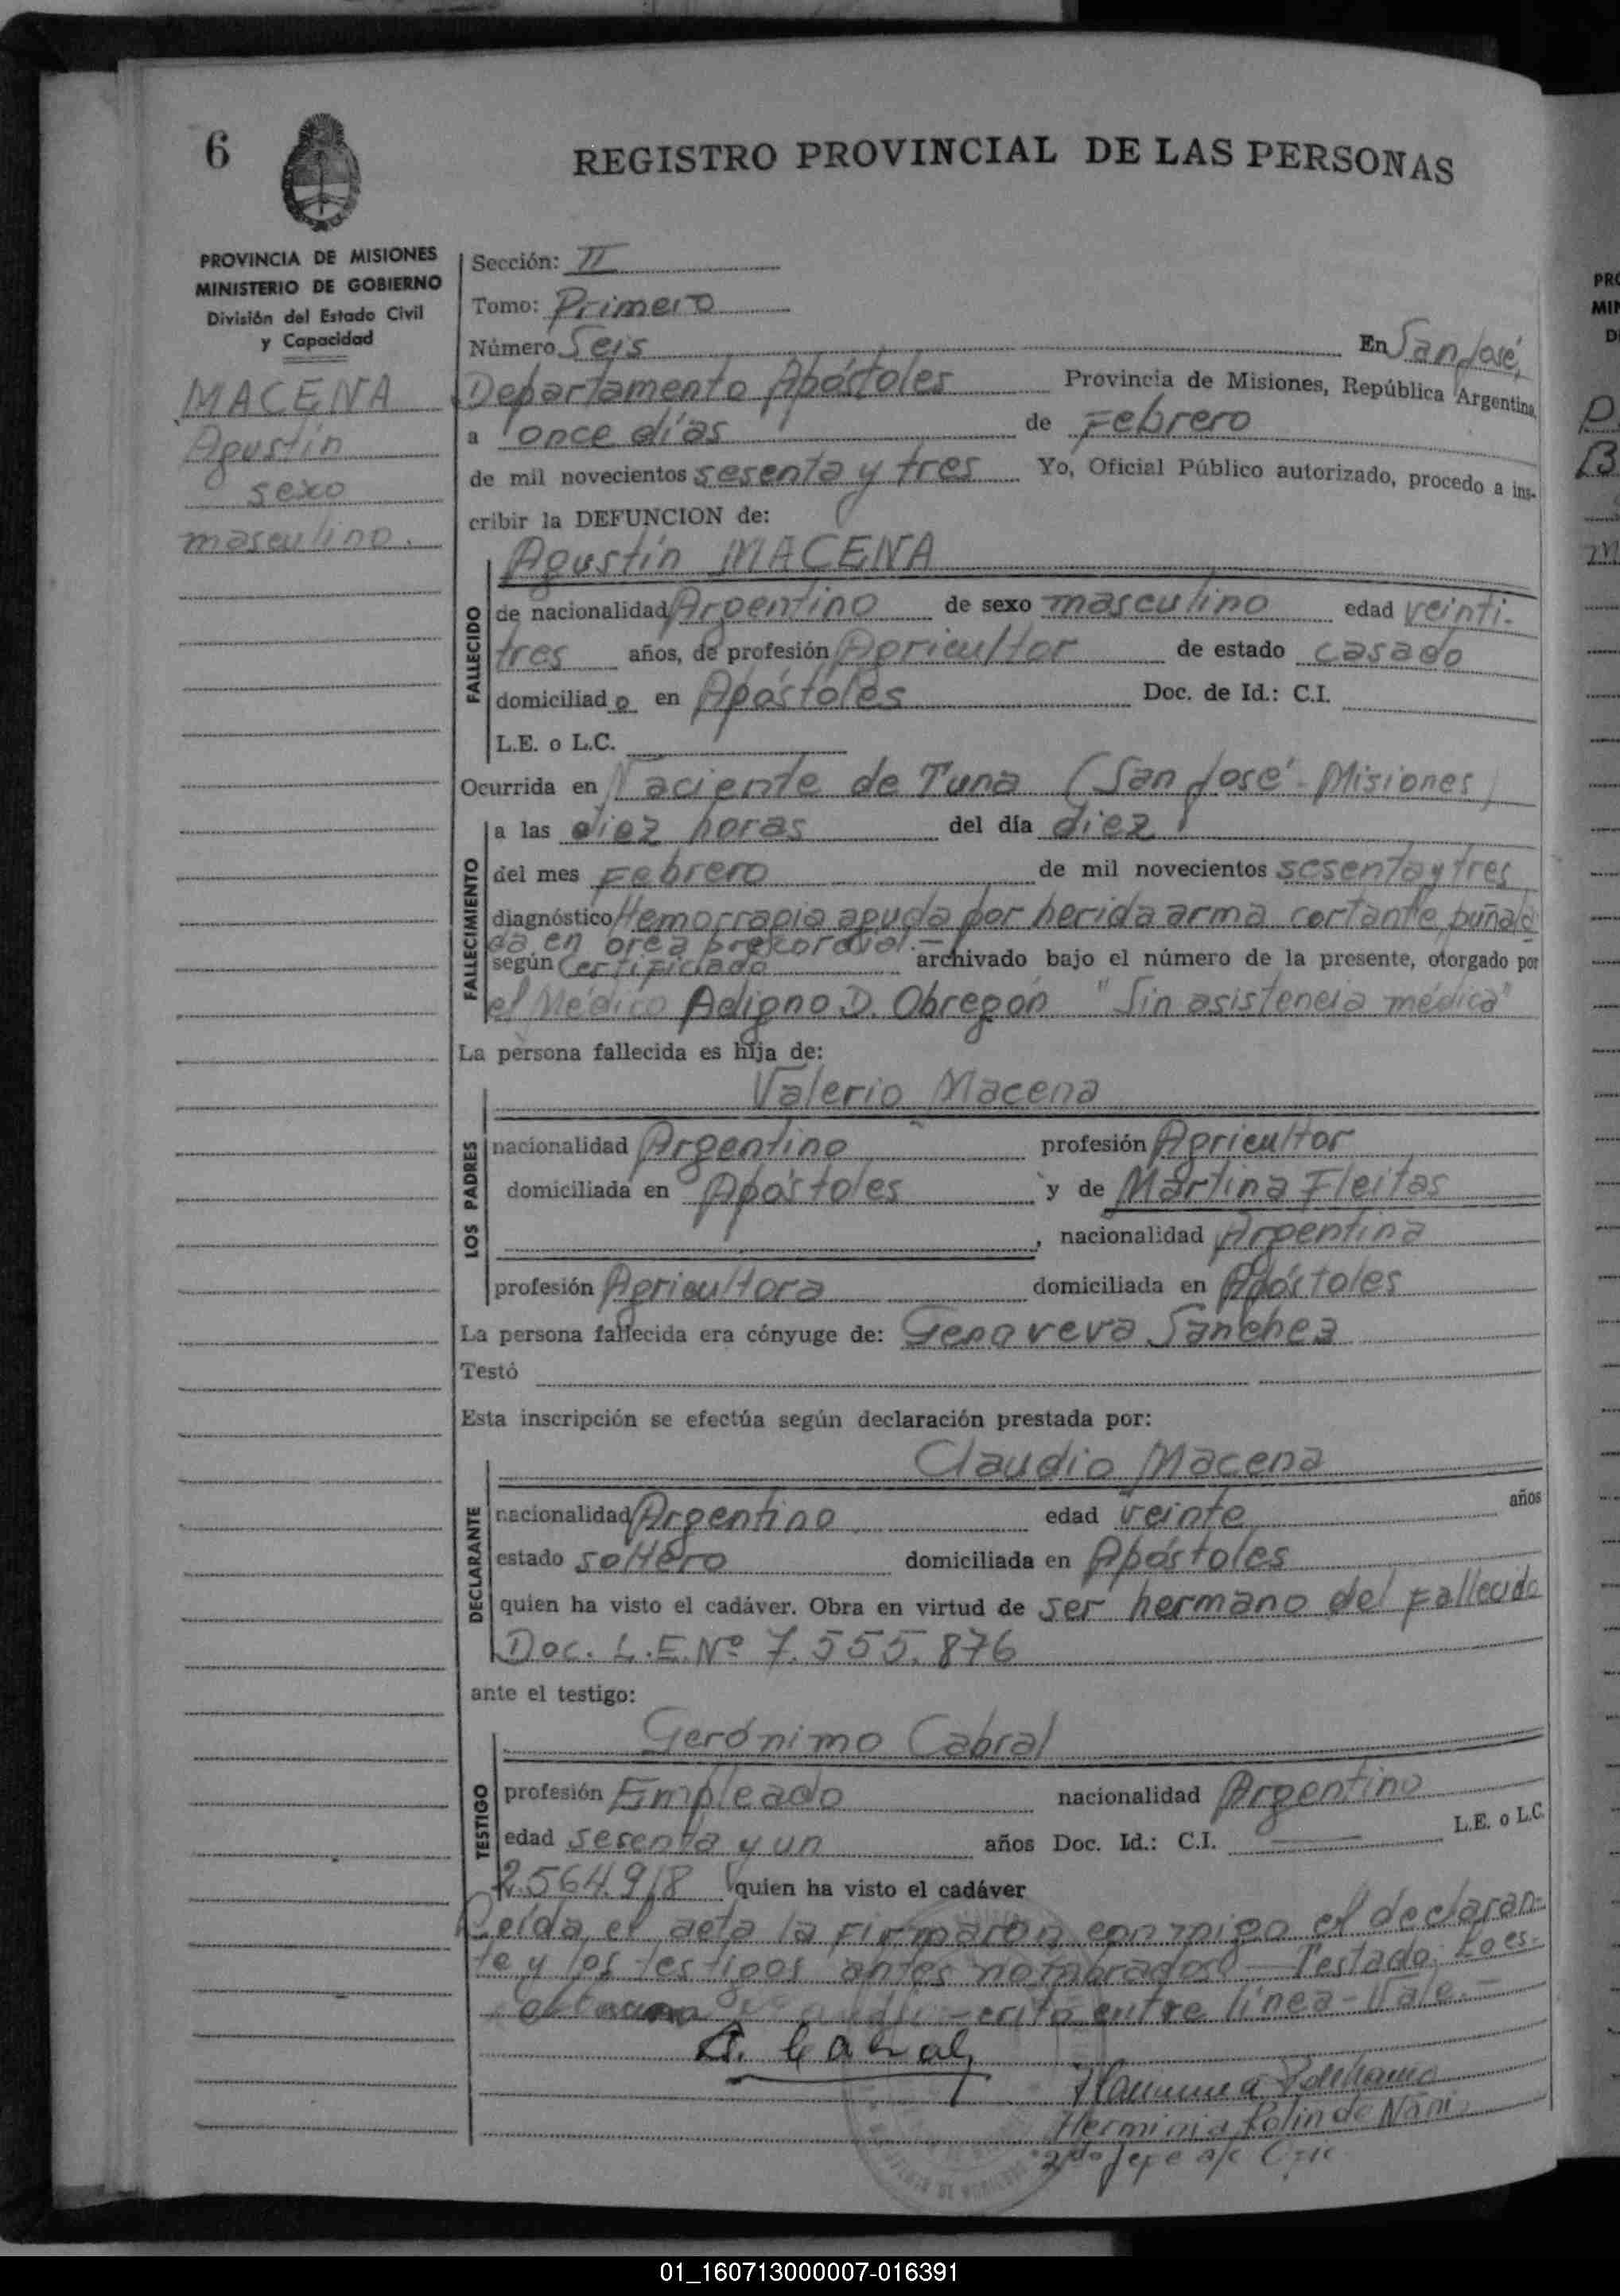 6
REGISTRO PROVINCIAL DE LAS PERSONAS
PROVINCIA DE MISIONES
MINISTERIO DE GOBIERNO
División del Estado Civil
y Capacidad
MACENA
Agustín
sexo
masculino.
Sección: II
Tomo: Primero
Número Seis En San José,
Departamento Apóstoles Provincia de Misiones, República Argentina,
a once días de Febrero
de mil novecientos sesenta y tres Yo, Oficial Público autorizado, procedo a ins-
cribir la DEFUNCION de:
Agustín MACENA
FALLECIDO
de nacionalidad Argentino de sexo masculino edad veinti-
tres años, de profesión Agricultor de estado casado
domiciliado en Apóstoles Doc. de Id.: C.I.
L.E. o L.C.
Ocurrida en Naciente de Tuna (San José - Misiones)
FALLECIMIENTO
a las diez horas del día diez
del mes Febrero de mil novecientos sesenta y tres
diagnóstico Hemorragia aguda por herida arma cortante, puñala
da en area precordial.-
según Certificiado archivado bajo el número de la presente, otorgado por
el Médico Adigno D. Obregón "Sin asistencia médica"
La persona fallecida es hija de:
Valerio Macena
LOS PADRES
nacionalidad Argentino profesión Agricultor
domiciliada en Apóstoles y de Martina Fleitas
, nacionalidad Argentina
profesión Agricultora domiciliada en Apóstoles
La persona fallecida era cónyuge de: Genoveva Sanchez
Testó
Esta inscripción se efectúa según declaración prestada por:
Claudio Macena
DECLARANTE
nacionalidad Argentino edad veinte años
estado soltero domiciliada en Apóstoles
quien ha visto el cadáver. Obra en virtud de ser hermano del fallecido
Doc. L.E. Nº 7.555.876
ante el testigo:
Gerónimo Cabral
TESTIGO
profesión Empleado nacionalidad Argentino
edad sesenta y un años Doc. Id.: C.I. L.E. o L.C.
2.564.918 quien ha visto el cadáver
Leída el acta la firmaron conmigo el declaran-
te y los testigos antes nombrados - Testado: Lo es-
crito entre línea - Vale.-
G. Cabral
Herminia Rolin de Nani
2do Jefe a/c
PRO
MIN
D
01_160713000007-016391